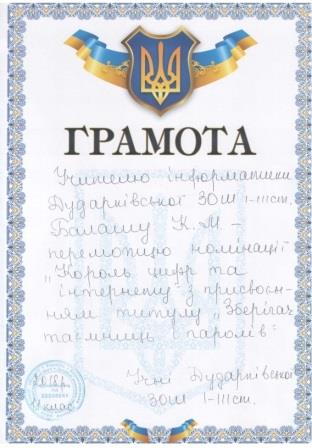 ГРАМОТА
Учителю інформатики
Дударківської ЗОШ I-IIIст.
Балашу К.М. -
переможцю номінації
„Король цифр та
інтернету" з присвоєн-
ням титулу „Зберігач
таємниць і паролів"
2018р.
Учні Дударківської
ЗОШ I-IIIст.